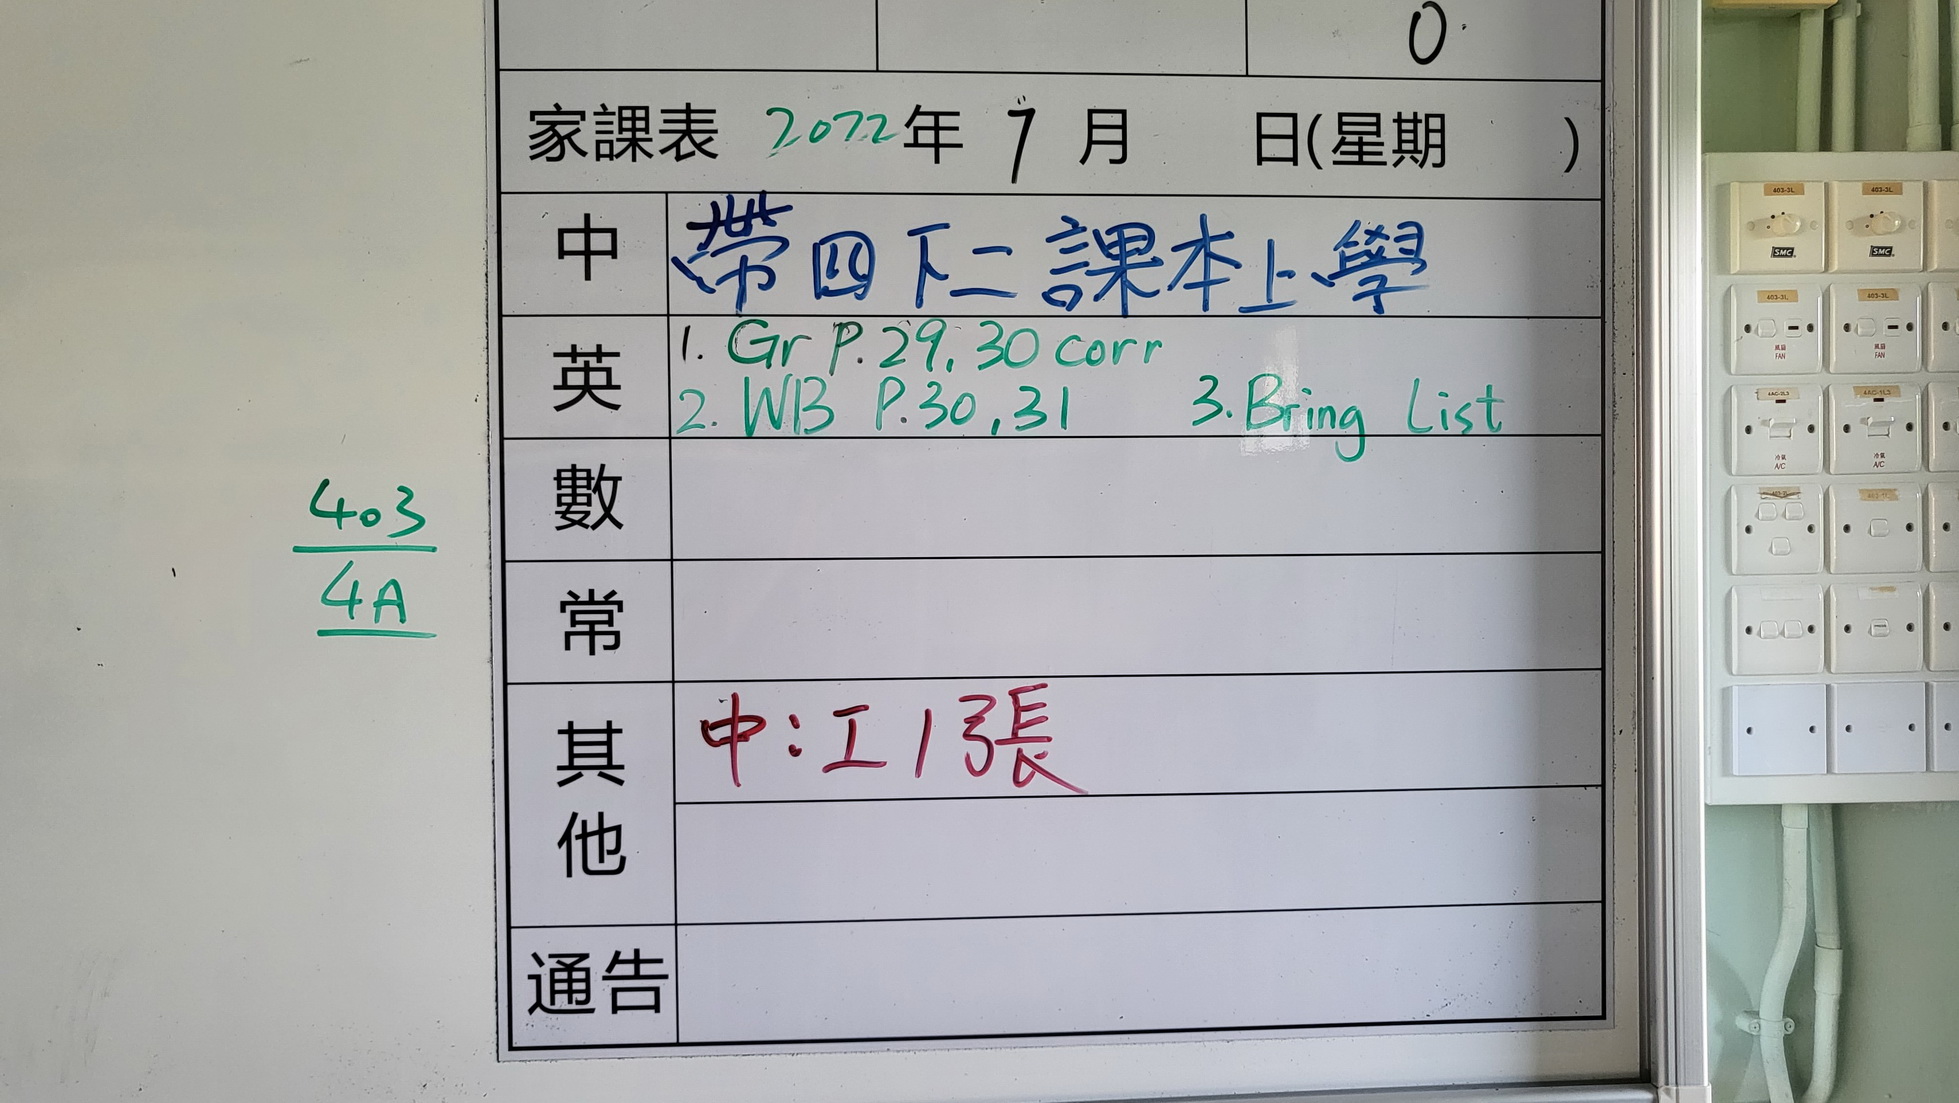 0
家課表 2022年 7 月 日(星期 )
中 帶四下二課本上學
英 1. Gr P.29, 30 corr
2. WB P.30, 31 3. Bring List
數
常
403
4A
其他 中:工1張
通告
403-3L 403-3L
SMC SMC
403-3L 403-3L
風扇 風扇
FAN FAN
4AC-2L3 4AC-1L3
冷氣 冷氣
A/C A/C